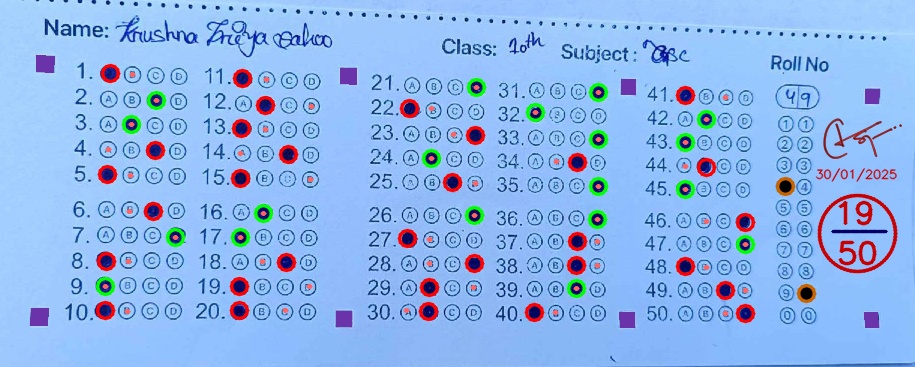 Name: Krushna Priya sahoo
Class: 10th
Subject:
Roll No
49
1. A B C D
2. A B C D
3. A B C D
4. A B C D
5. A B C D
6. A B C D
7. A B C D
8. A B C D
9. A B C D
10. A B C D
11. A B C D
12. A B C D
13. A B C D
14. A B C D
15. A B C D
16. A B C D
17. A B C D
18. A B C D
19. A B C D
20. A B C D
21. A B C D
22. A B C D
23. A B C D
24. A B C D
25. A B C D
26. A B C D
27. A B C D
28. A B C D
29. A B C D
30. A B C D
31. A B C D
32. A B C D
33. A B C D
34. A B C D
35. A B C D
36. A B C D
37. A B C D
38. A B C D
39. A B C D
40. A B C D
41. A B C D
42. A B C D
43. A B C D
44. A B C D
45. A B C D
46. A B C D
47. A B C D
48. A B C D
49. A B C D
50. A B C D
1 1
2 2
3 3
4
5 5
6 6
7 7
8 8
9
0 0
30/01/2025
19
50